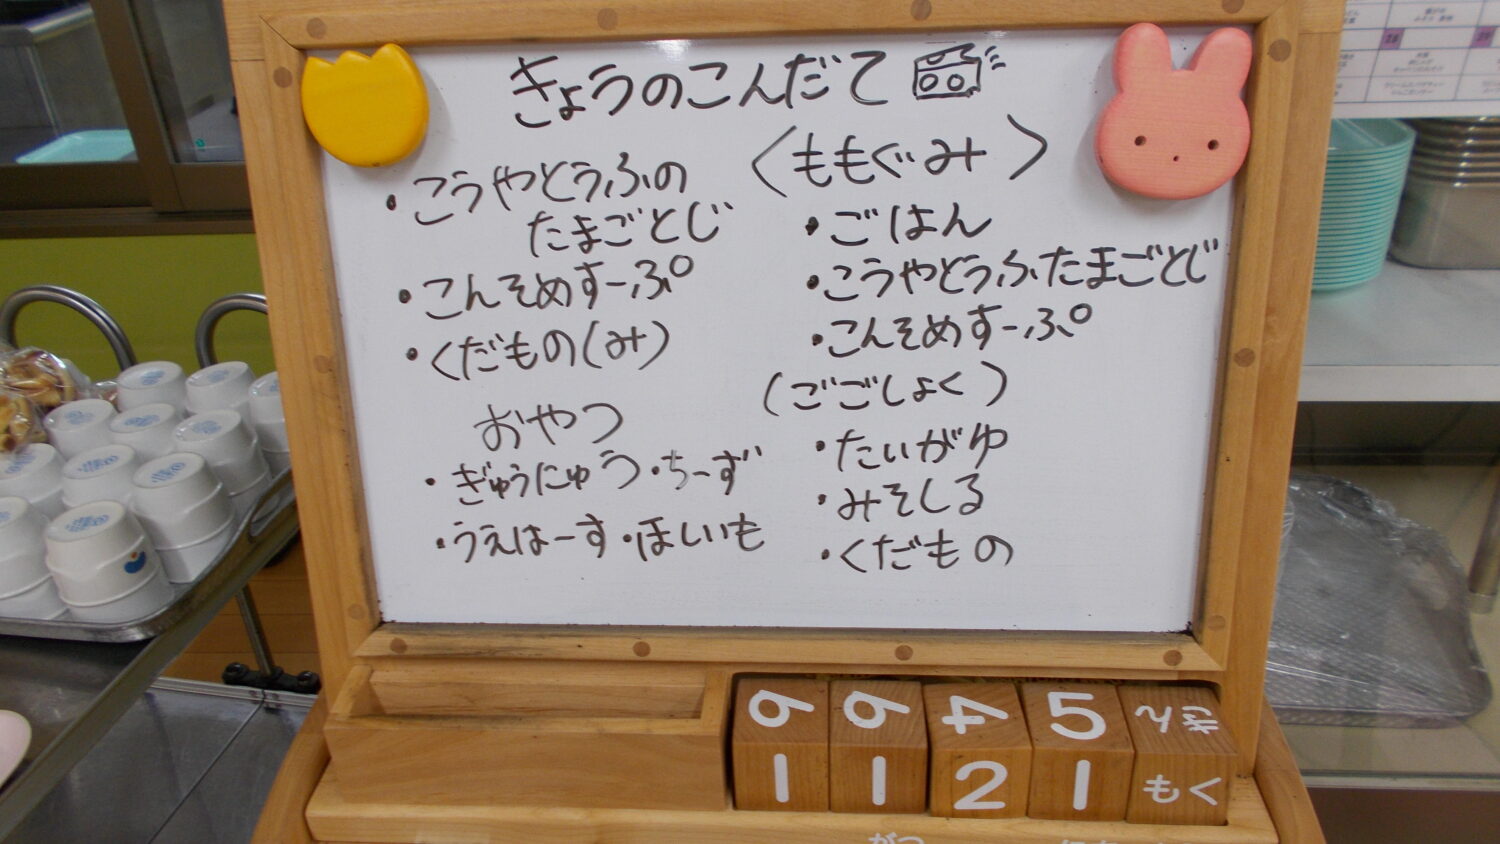 きょうのこんだて
・こうやどうふの
たまごとじ
・こんそめすーぷ
・くだもの(み)
おやつ
・ぎゅうにゅう・ちーず
・うえはーす・ほしいも
〈ももぐみ〉
・ごはん
・こうやどうふたまごとじ
・こんそめすーぷ
(ごごしょく)
・たいがゆ
・みそしる
・くだもの
6 6 4 5 きん
1 1 2 1 もく
がつ